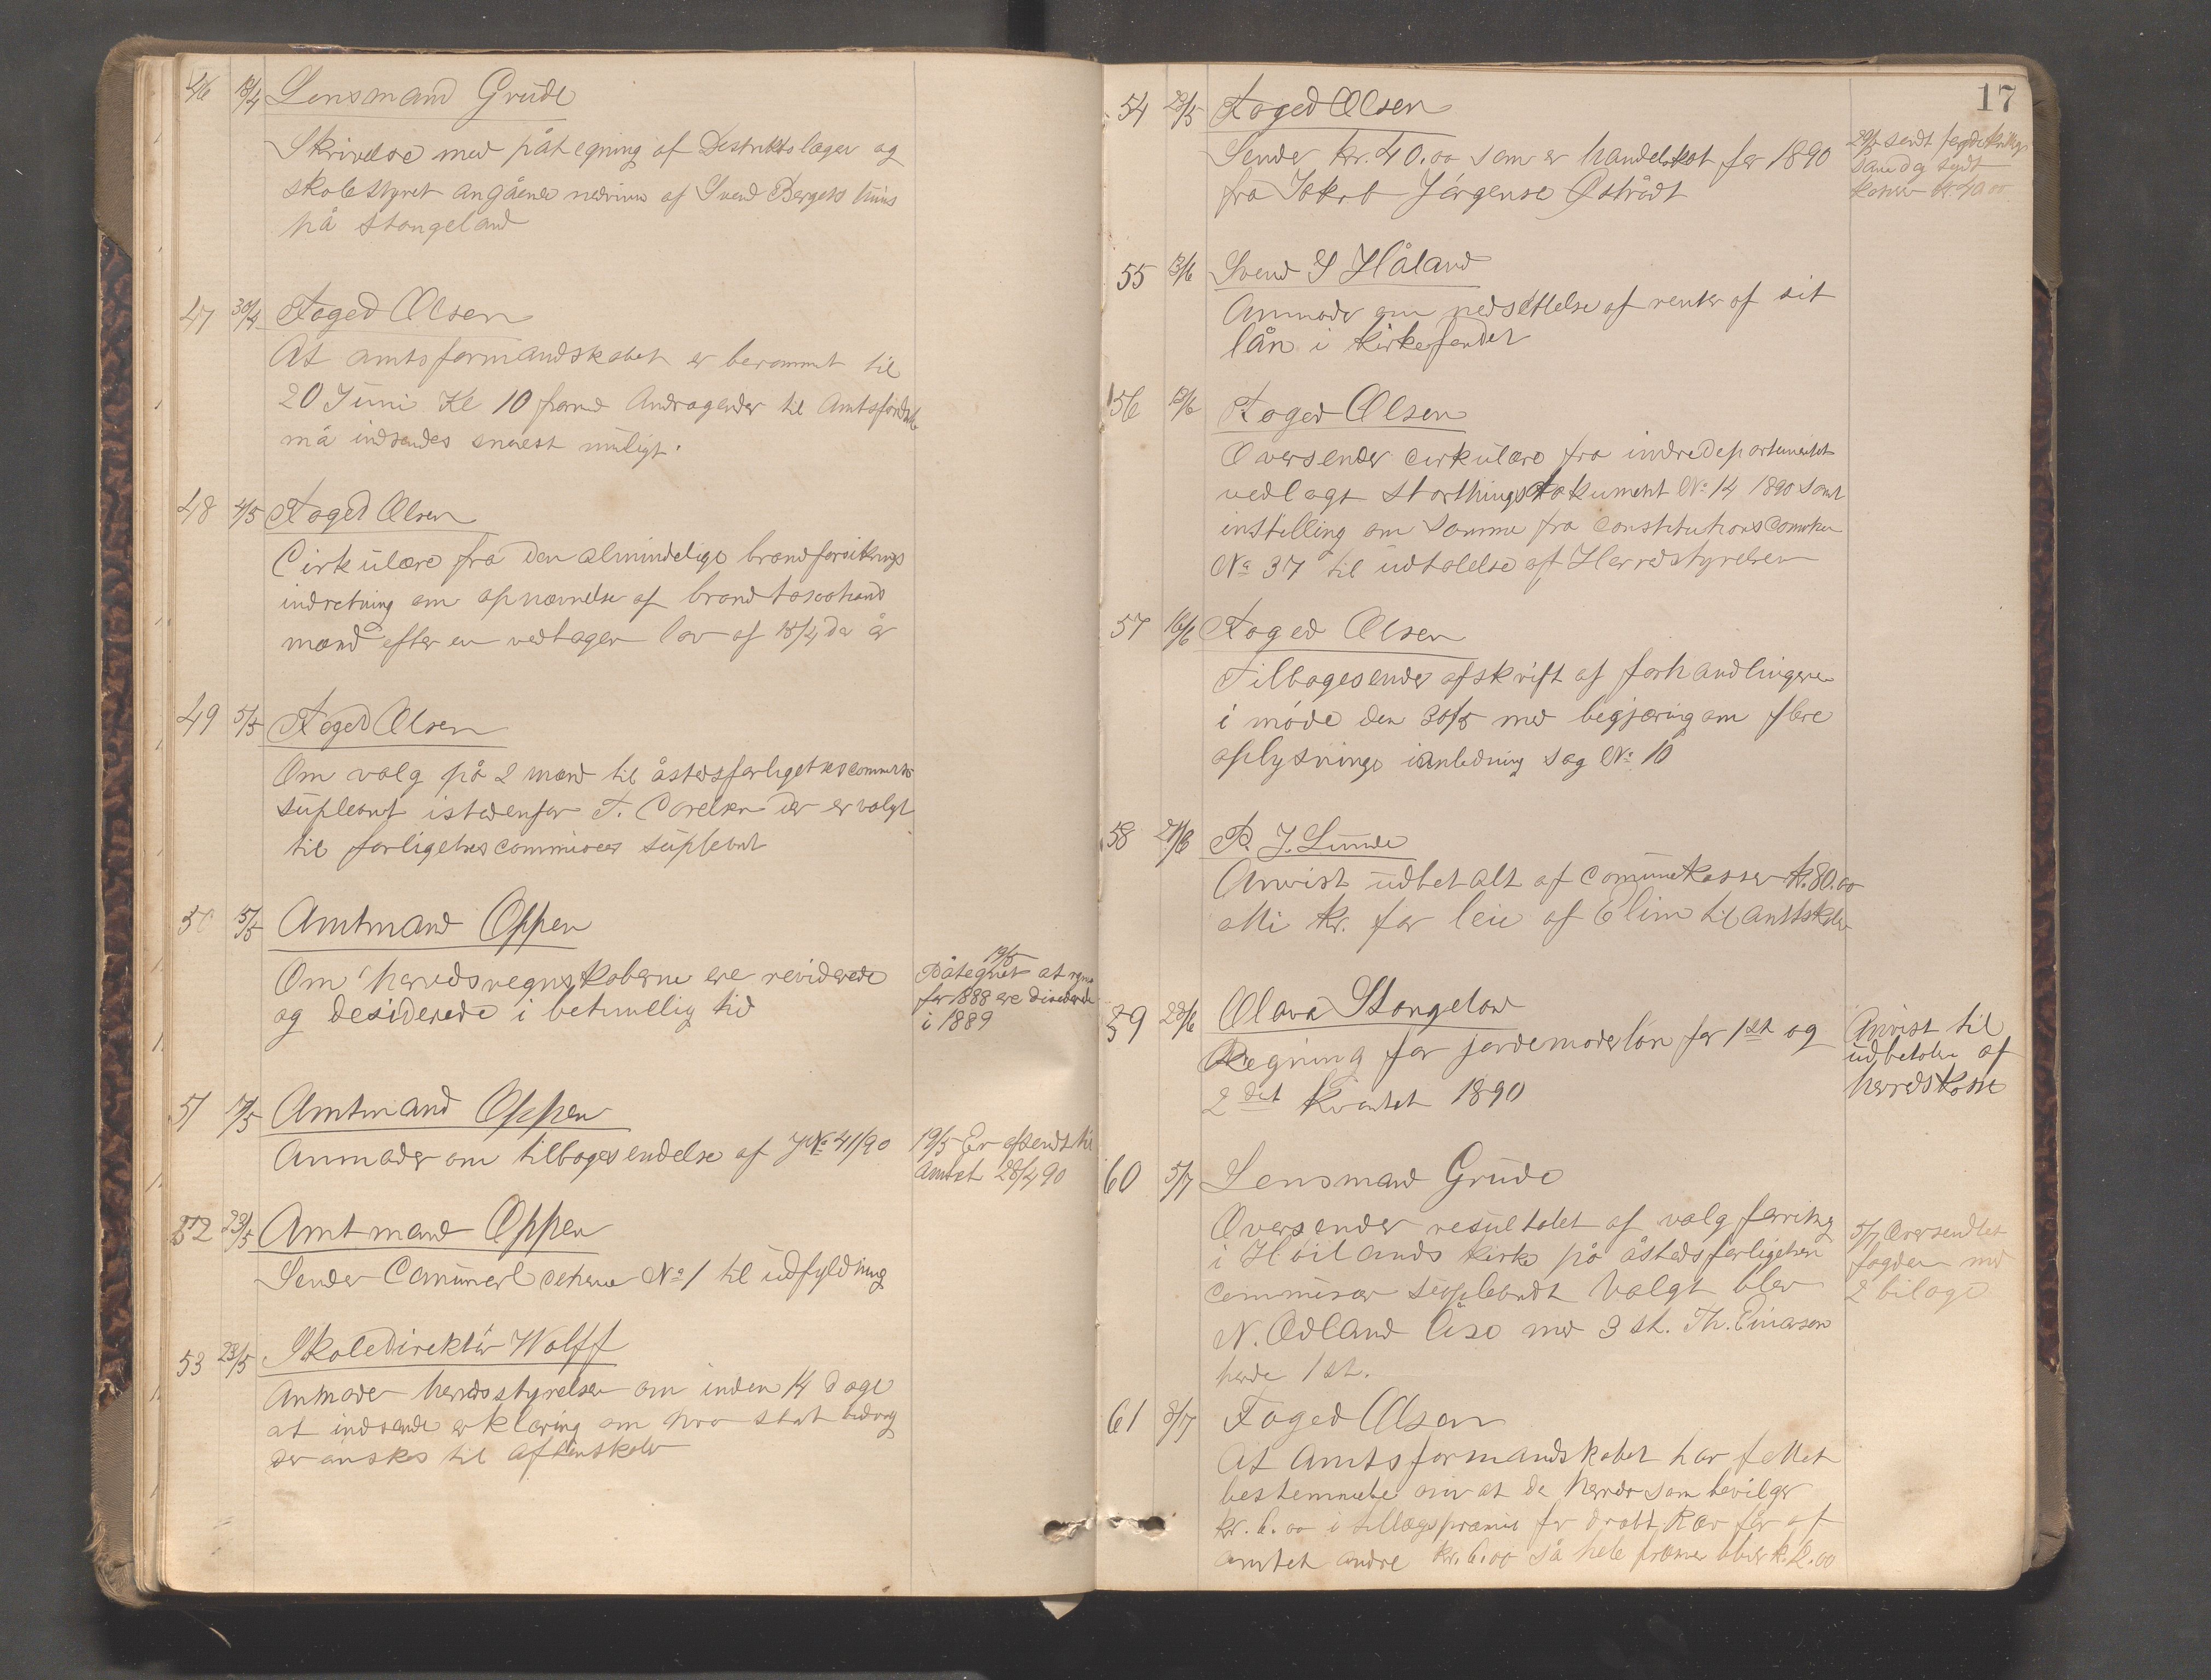 46 18/4 Lensmand Grude
Skrivelse med påtegning af Destriktslægen og
skolestyret angående nedrivn af Svend Bergets huus
på Stangeland
47 30/4 Foged Olsen
At amtsformandskabet er berammt til
20 Juni Kl 10 form Andragender til Amtsfordsk
må indsendes snarest muligt.
48 4/5 Foged Olsen
Cirkulære fra den almindelige brandforsikrings
indretning om opnævnelse af brandtaxations
mænd efter en vedtagen lov af 15/4 da år
49 5/5 Foged Olsen
Om valg på 2 mænd til åstedsforligelses
supleant istedenfor T. der er valgt
til forligelses commisær supleant
50 5/5 Amtmand Oppen
Om herredsregnskaberne ere reviderede
og desiderede i betimellig tid
19/5
Påtegnet at
for 1888 ere
i 1889
51 17/5 Amtmand Oppen
Anmoder om tilbagesendelse af J№ 41/90
19/5 Er afsendt til
Amtet 28/4 90
52 23/5 Amtmand Oppen
Sender schema № 1 til udfyldning
53 23/5 Skoledirektör Wolff
Anmoder herredsstyrelsen om inden 14 dage
at indsende erklæring om hvor stat bidrag
der önskes til aftenskoler
17
54 23/5 Foged Olsen
Sender kr. 40.00 som er handelskat for 1890
fra Jakob Jörgense Östrådt
29/5 sendt
samdeg sendt
kasser kr 40 00
55 13/6 Svend S Håland
Anmoder om nedsettelse af renter af sit
lån i kirkefondet
56 13/6 Foged Olsen
Oversender cirkulære fra indredepartementet
vedlagt Storthingsdokument № 14 1890 samt
instilling om samme fra constitutions
№ 37 til udtalelse af Herredstyrelsen
57 16/6 Foged Olsen
Tilbagesender afskrift af forhandlingene
i möde den 30/5 med begjæring om flere
oplysninge ianledning sag № 10
58 21/6 P. J. Lunde
Anvist udbetalt af comunekassen kr. 80.00
otti kr. for leie af Elim til amtskolen
59 28/6 Olava Stangeland
Regning for jordemoderlön for 1ste og
2det kvartal 1890
Anvist til
udbetalin af
herredskasse
60 5/7 Lensmand Grude
Oversender resultatet af valg forrettning
i Höilands kirke på åstedsforligelsen
commisær supleandt valgt blev
N. Odland med 3 st. Th. Einarsen
herde 1 st.
5/7 Oversendtes
fogden med
2 bilage
61 8/7 Foged Olsen
At Amtsformandskabet har fattet
bestemmelse om at de herreder som bevilger
kr. 6.00 i tillægspræmie for dræbt Ræv får af
amtet andre kr. 6.00 så hele præmen bliver kr. 12.00